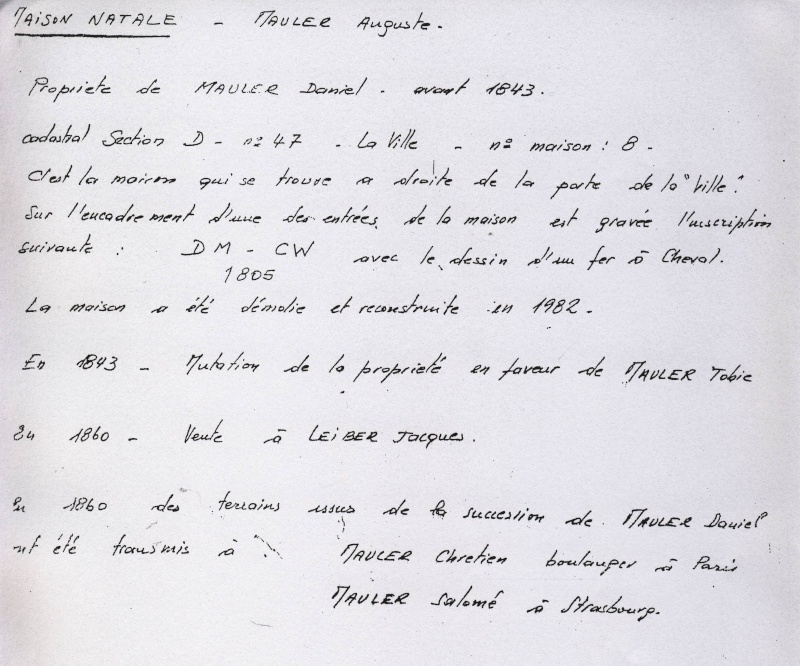 MAISON NATALE - MAULER Auguste.
Propriete de MAULER Daniel. avant 1843.
cadastral Section D - nº 47 - La Ville - nº maison : 8 -
C'est la maison qui se trouve a droite de la porte de la "Ville".
Sur l'encadrement d'une des entrées, de la maison est gravée l'inscription
suivante : DM - CW avec le dessin d'un fer à Cheval.
1805
La maison a été démolie et reconstruite en 1982.
En 1843 - Mutation de la propriété en faveur de MAULER Tobie
En 1860 - Vente à LEIBER Jacques.
En 1860 des terrains issus de la succession de MAULER Daniel
nt été transmis à : MAULER Chretien boulanger à Paris
MAULER Salomé à Strasbourg.